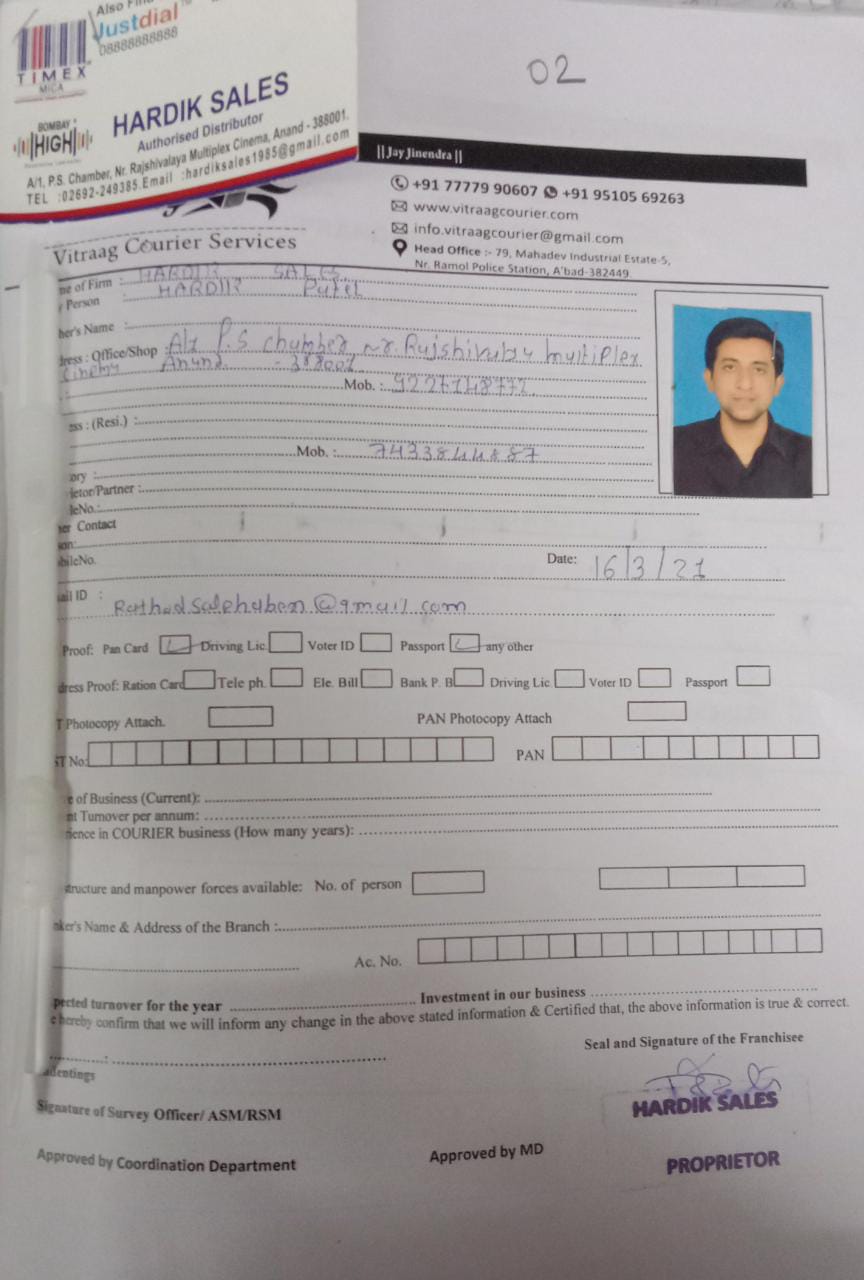 Also Fin
Justdial™
08888888888
TIMEX
MICA
BOMBAY
HIGH
HARDIK SALES
Authorised Distributor
A/1, P.S. Chamber, Nr. Rajshivalaya Multiplex Cinema, Anand - 388001.
TEL :02692-249385.Email :hardiksales1985@gmail.com
02
||Jay Jinendra||
+91 77779 90607 +91 95105 69263
www.vitraagcourier.com
info.vitraagcourier@gmail.com
Head Office :- 79, Mahadev Industrial Estate-5,
Nr. Ramol Police Station, A'bad-382449.
Vitraag Courier Services
me of Firm : HARDIK SALES
Person : HARDIK Patel
her's Name :
dress : Office/Shop : A/1 P.S chamber nr. Rajshivalay multiplex
Cinema Anand - 388001
Mob. : 9227148772
ess : (Resi.) :
Mob. : 7433844887
ory :
ietor/Partner :
leNo.:
er Contact
son:
bileNo.
Date: 16/3/21
ail ID : Rathodsalphaben@gmail.com
Proof: Pan Card Driving Lic. Voter ID Passport any other
dress Proof: Ration Card Tele ph. Ele. Bill Bank P. B Driving Lic Voter ID Passport
T Photocopy Attach. PAN Photocopy Attach
ST No: PAN
e of Business (Current):
nt Turnover per annum:
rience in COURIER business (How many years):
structure and manpower forces available: No. of person
nker's Name & Address of the Branch :
Ac. No.
pected turnover for the year Investment in our business
e hereby confirm that we will inform any change in the above stated information & Certified that, the above information is true & correct.
Seal and Signature of the Franchisee
adentings
HARDIK SALES
Signature of Survey Officer/ ASM/RSM
Approved by Coordination Department
Approved by MD
PROPRIETOR